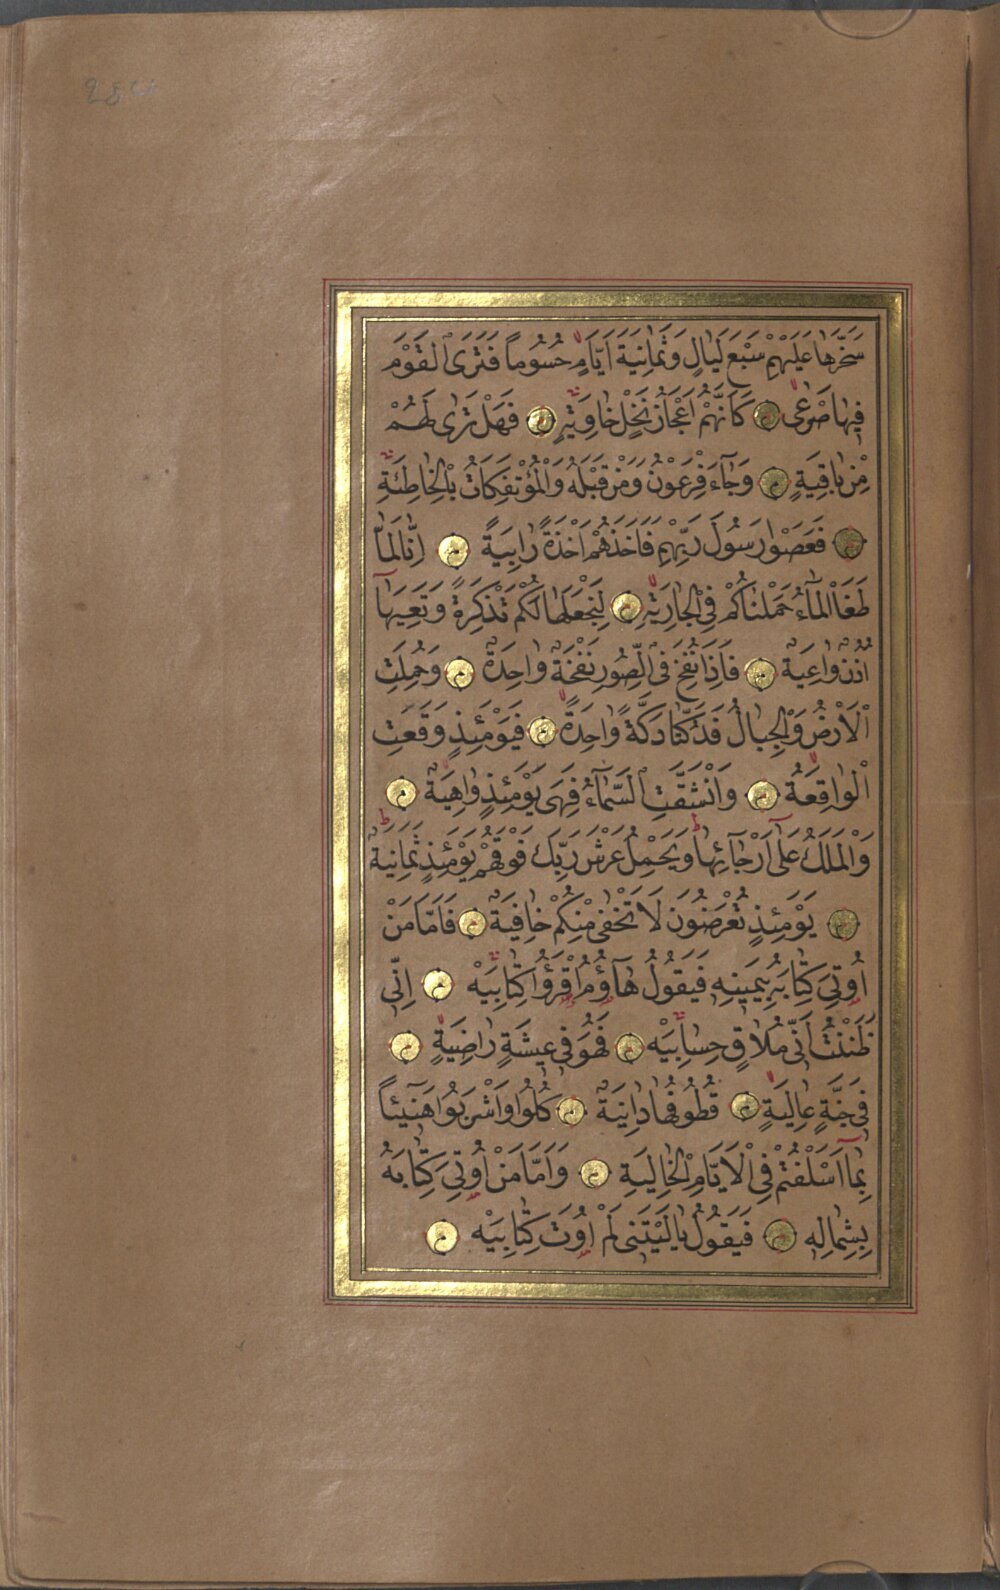 سَخَّرَهَا عَلَيْهِمْ سَبْعَ لَيَالٍ وَثَمَانِيَةَ اَيَّامٍ حُسُوماً فَتَرَى الْقَوْمَ
فِيهَا صَرْعٰى كَاَنَّهُمْ اَعْجَازُ نَخْلٍ خَاوِيَةٍ فَهَلْ تَرٰى لَهُمْ
مِنْ بَاقِيَةٍ وَجَآءَ فِرْعَوْنُ وَمَنْ قَبْلَهُ وَالْمُؤْتَفِكَاتُ بِالْخَاطِئَةِ
فَعَصَوْا رَسُولَ رَبِّهِمْ فَاَخَذَهُمْ اَخْذَةً رَابِيَةً اِنَّا لَمَّا
طَغَا الْمَآءُ حَمَلْنَاكُمْ فِى الْجَارِيَةِ لِنَجْعَلَهَا لَكُمْ تَذْكِرَةً وَتَعِيَهَآ
اُذُنٌ وَاعِيَةٌ فَاِذَا نُفِخَ فِى الصُّورِ نَفْخَةٌ وَاحِدَةٌ وَحُمِلَتِ
الْاَرْضُ وَالْجِبَالُ فَدُكَّتَا دَكَّةً وَاحِدَةً فَيَوْمَئِذٍ وَقَعَتِ
الْوَاقِعَةُ وَانْشَقَّتِ السَّمَآءُ فَهِىَ يَوْمَئِذٍ وَاهِيَةٌ
وَالْمَلَكُ عَلٰٓى اَرْجَآئِهَا وَيَحْمِلُ عَرْشَ رَبِّكَ فَوْقَهُمْ يَوْمَئِذٍ ثَمَانِيَةٌ
يَوْمَئِذٍ تُعْرَضُونَ لَا تَخْفٰى مِنْكُمْ خَافِيَةٌ فَاَمَّا مَنْ
اُوتِىَ كِتَابَهُ بِيَمِينِهِ فَيَقُولُ هَآؤُمُ اقْرَؤُا كِتَابِيَهْ اِنِّى
ظَنَنْتُ اَنِّى مُلَاقٍ حِسَابِيَهْ فَهُوَ فِى عِيشَةٍ رَاضِيَةٍ
فِى جَنَّةٍ عَالِيَةٍ قُطُوفُهَا دَانِيَةٌ كُلُوا وَاشْرَبُوا هَنِٓيئاً
بِمَآ اَسْلَفْتُمْ فِى الْاَيَّامِ الْخَالِيَةِ وَاَمَّا مَنْ اُوتِىَ كِتَابَهُ
بِشِمَالِهِ فَيَقُولُ يَالَيْتَنِى لَمْ اُوتَ كِتَابِيَهْ